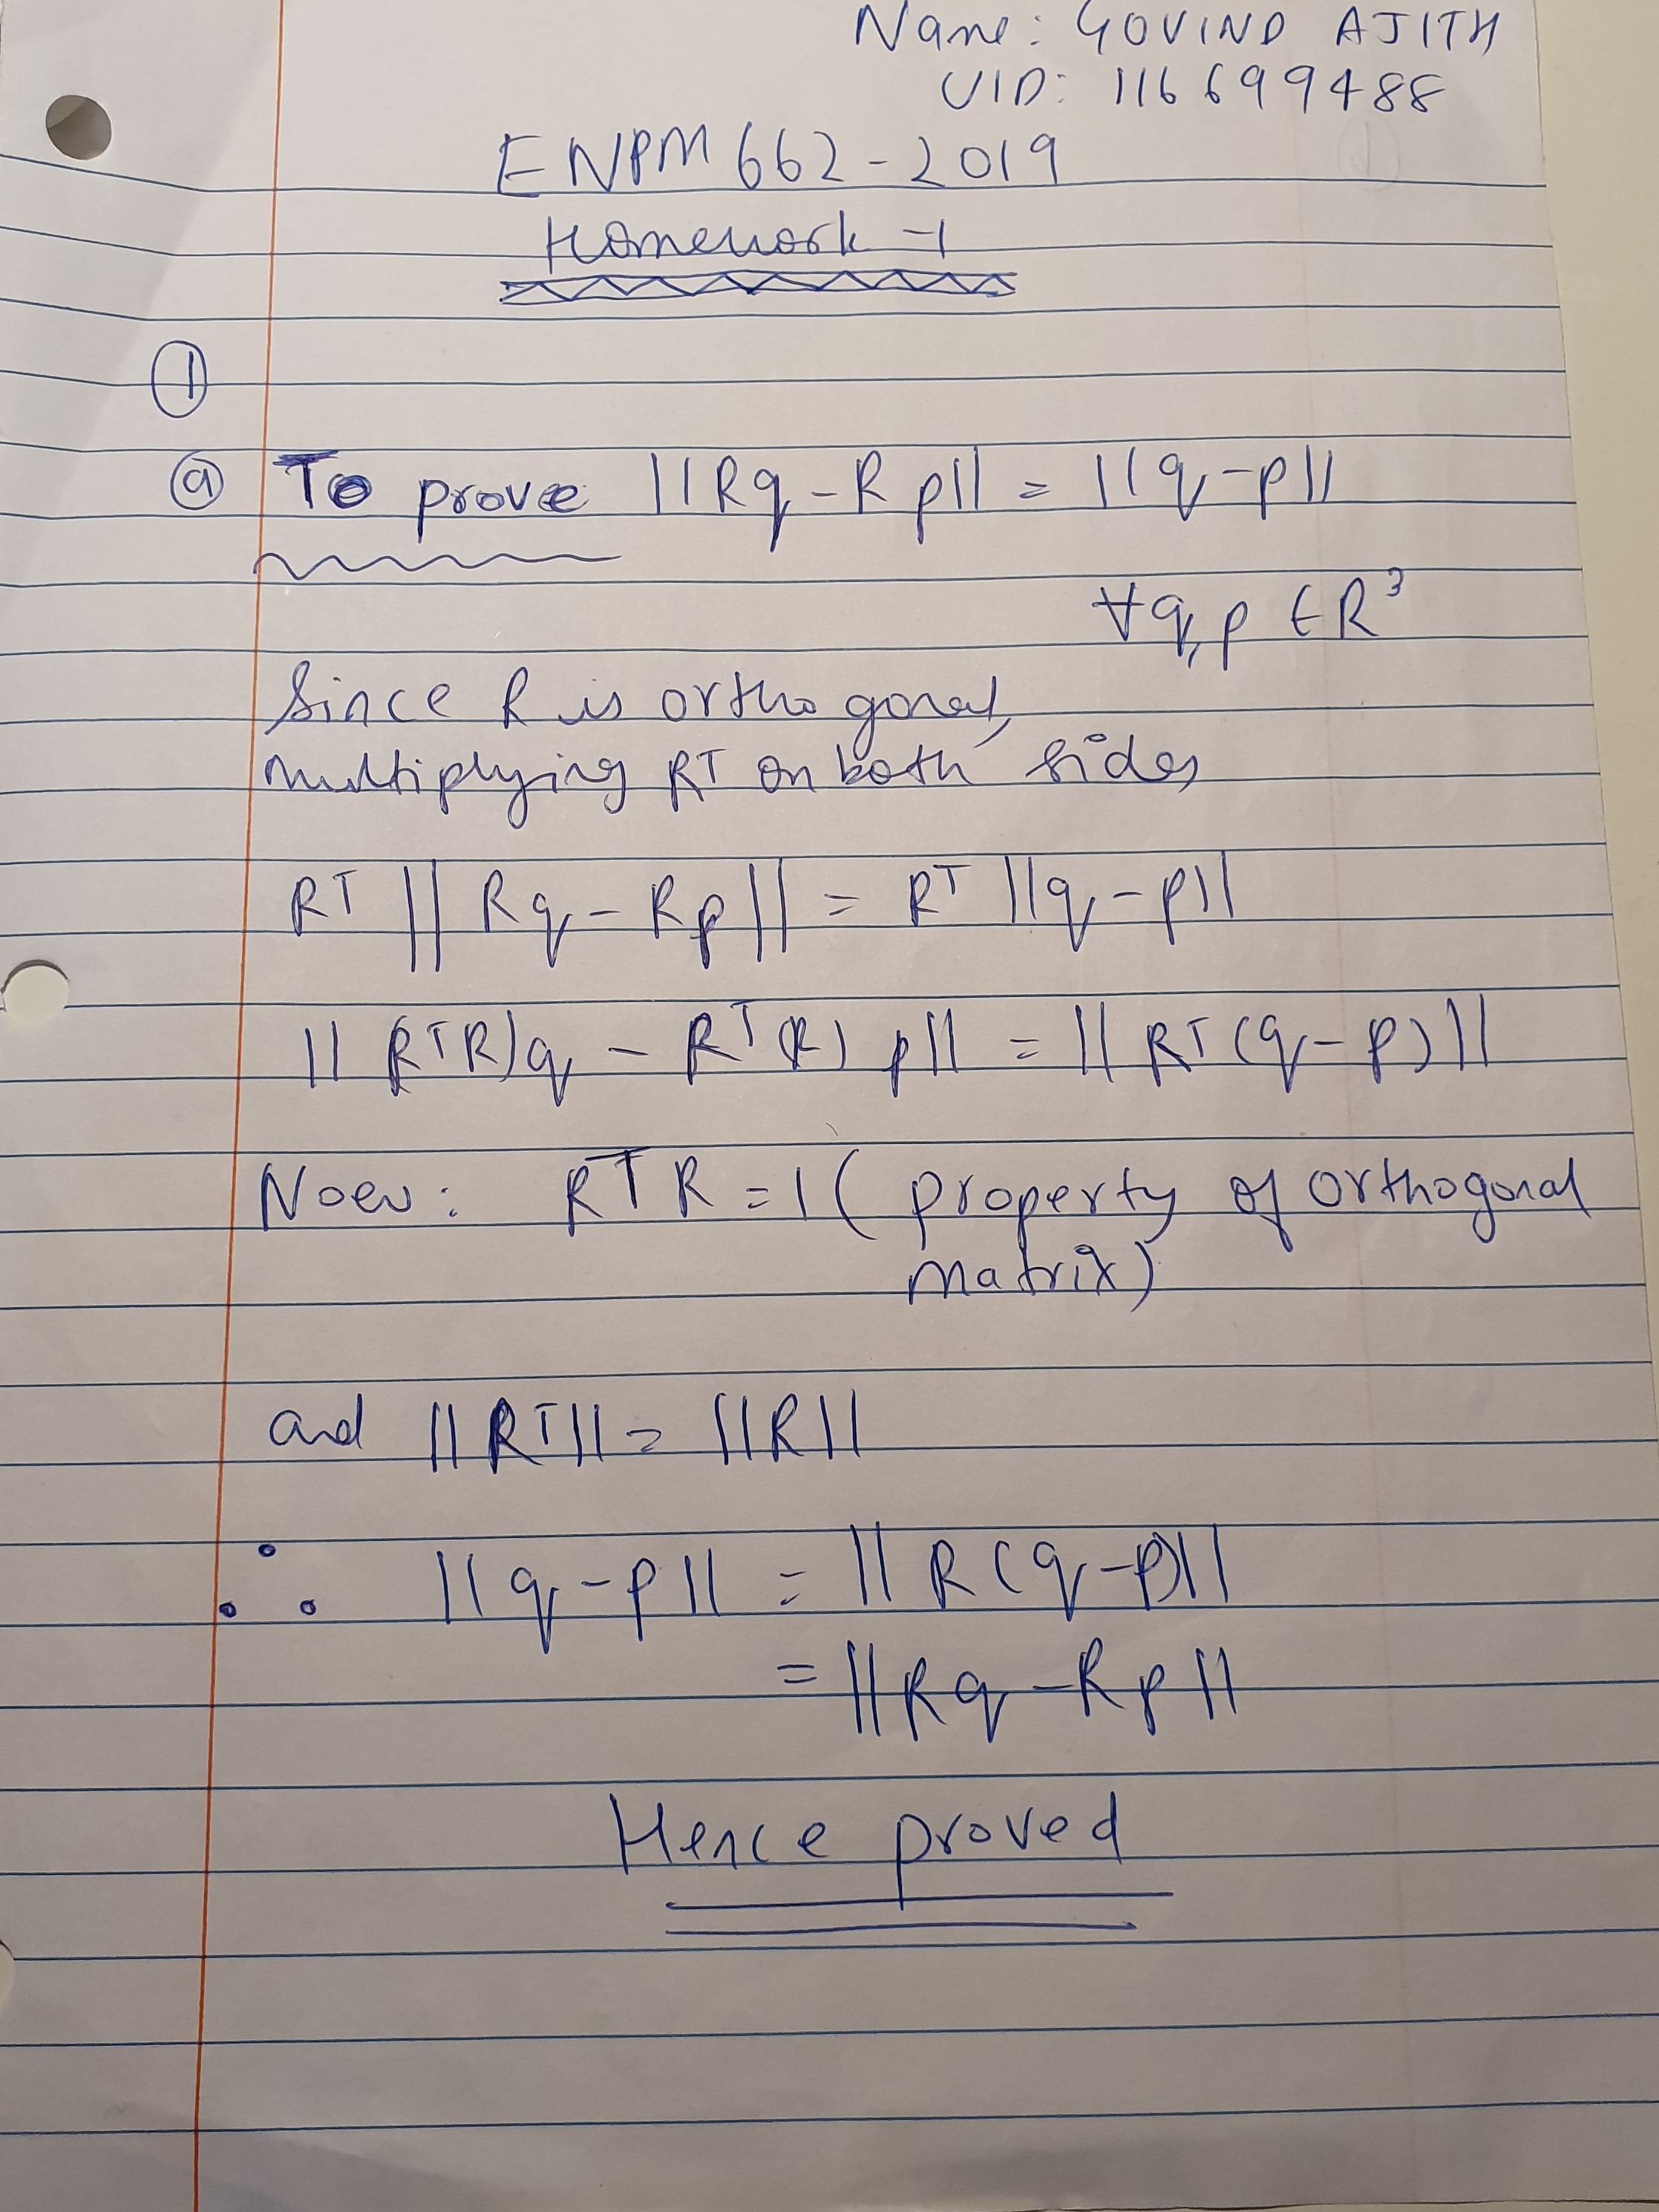 Name: GOVIND AJITH
UID: 116699488
ENPM662-2019
Homework-1
①
ⓐ To prove ||Rq-Rp|| = ||q-p||
∀q,p ∈ R³
Since R is orthogonal,
multiplying Rᵀ on both sides
Rᵀ || Rq - Rp || = Rᵀ ||q-p||
|| (RᵀR)q - Rᵀ(R) p|| = || Rᵀ(q-p) ||
Now: RᵀR = 1 ( property of orthogonal
matrix)
and ||Rᵀ|| = ||R||
∴ ||q-p|| = || R(q-p)||
= ||Rq - Rp||
Hence proved